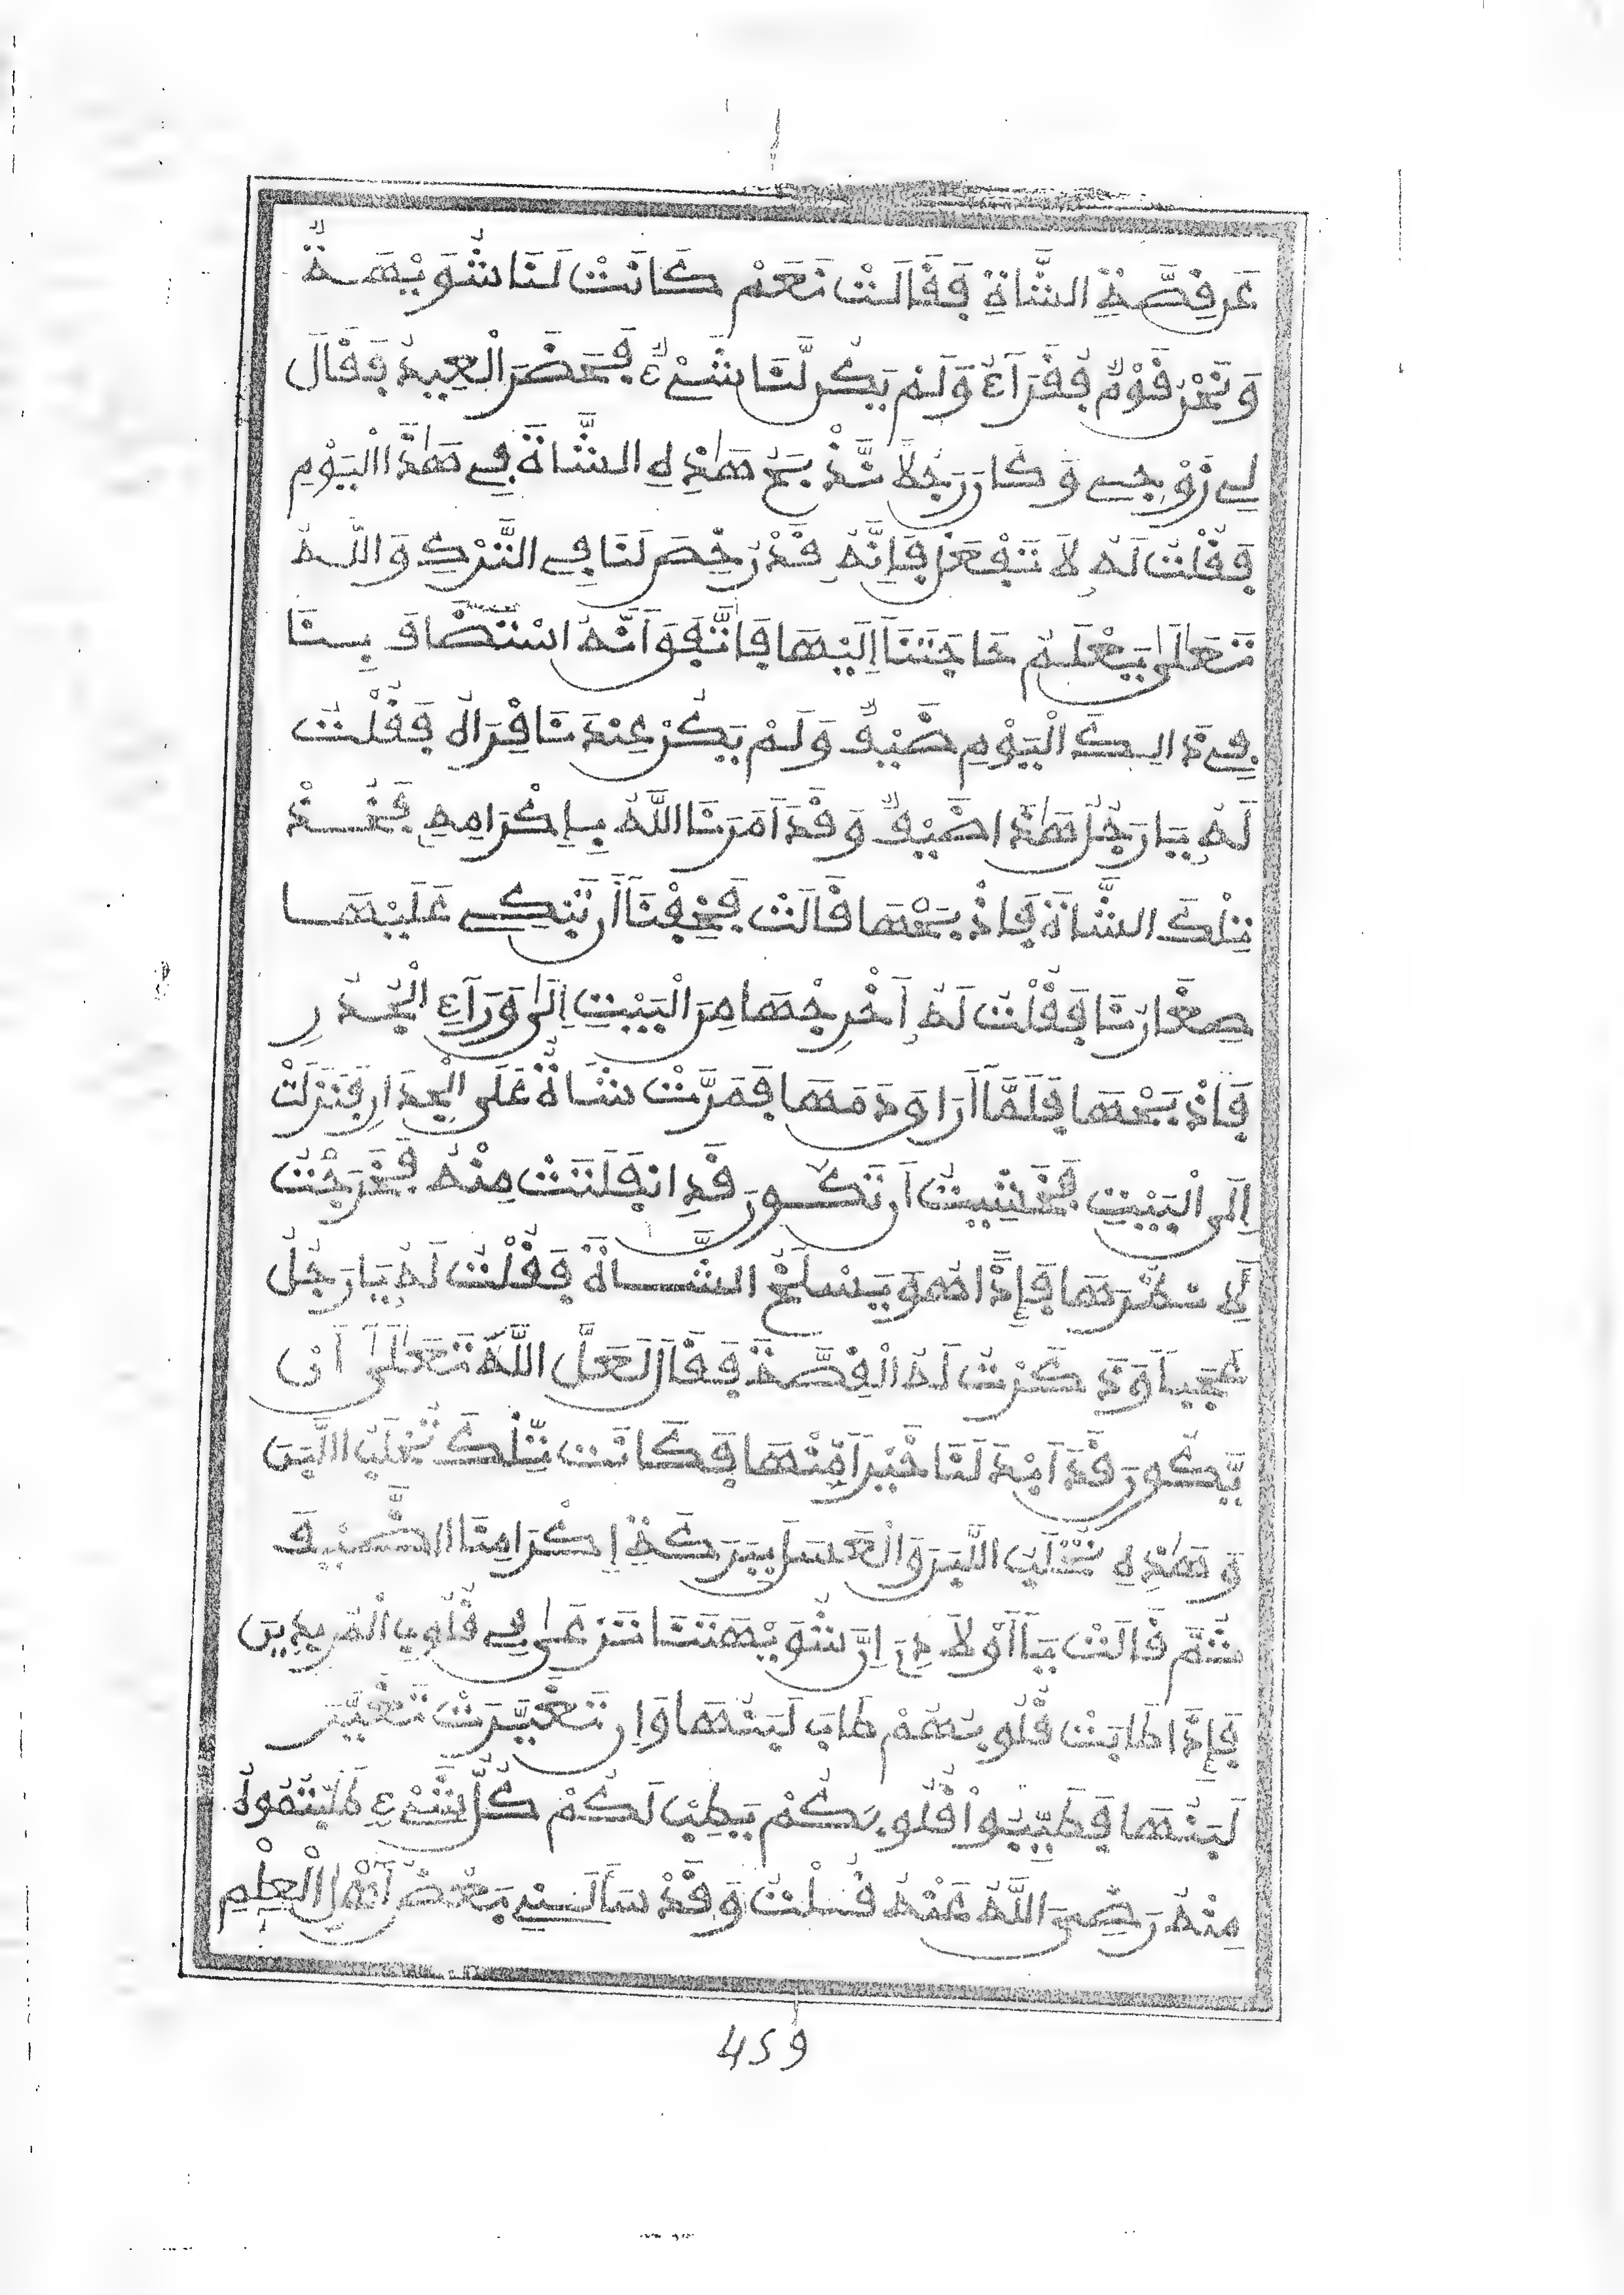 عَن قِصَّةِ الشَّاةِ فَقَالَتْ نَعَمْ كَانَتْ لَنَا شُوَيْهَةٌ
وَنَحْنُ قَوْمٌ فُقَرَآءُ وَلَمْ يَكُن لَّنَا شَيْءٌ فَحَضَرَ الْعِيدُ فَقَالَ
لِي زَوْجِي وَكَانَ رَجُلًا نَذْبَحُ هَٰذِهِ الشَّاةَ فِي هَٰذَا الْيَوْمِ
فَقُلْتُ لَهُ لَا تَفْعَلْ فَإِنَّهُ قَدْ رُخِّصَ لَنَا فِي التَّرْكِ وَاللَّهُ
تَعَالَىٰ يَعْلَمُ حَاجَتَنَا إِلَيْهَا فَاتَّفَقَ أَنَّهُ اسْتَضَافَ بِنَا
فِي ذَالِكَ الْيَوْمِ ضَيْفٌ وَلَمْ يَكُنْ عِنْدَنَا قِرَاهُ فَقُلْتُ
لَهُ يَا رَجُلُ هَٰذَا ضَيْفٌ وَقَدْ أَمَرَنَا اللَّهُ بِإِكْرَامِهِ فَخُذْ
تِلْكَ الشَّاةَ فَاذْبَحْهَا قَالَتْ فَخِفْنَا أَن تَبْكِي عَلَيْهَا
صِغَارُنَا فَقُلْتُ لَهُ أَخْرِجْهَا مِنَ الْبَيْتِ إِلَىٰ وَرَآءِ الْجُدُرِ
فَاذْبَحْهَا فَلَمَّا أَرَاقَ دَمَهَا فَمَرَّتْ شَاةٌ عَلَى الْجِدَارِ فَنَزَلَتْ
إِلَى الْبَيْتِ فَخَشِيتُ أَن تَكُونَ قَدِ انفَلَتَتْ مِنْهُ فَخَرَجْتُ
لِأَنظُرَهَا فَإِذَا هُوَ يَسْلَخُ الشَّاةَ فَقُلْتُ لَهُ يَا رَجُلُ
عَجَبًا وَذَكَرْتُ لَهُ الْقِصَّةَ فَقَالَ لَعَلَّ اللَّهَ تَعَالَىٰ أَن
يَّكُونَ قَدْ أَبْدَلَنَا خَيْرًا مِّنْهَا فَكَانَتْ تِلْكَ تُحْلَبُ اللَّبَنَ
وَهَٰذِهِ تُحْلَبُ اللَّبَنَ وَالْعَسَلَ بِبَرَكَةِ إِكْرَامِنَا الضَّيْفَ
ثُمَّ قَالَتْ يَا أَوْلَادِي إِنَّ شُوَيْهَتَنَا تَرْعَىٰ فِي قُلُوبِ الْمُرِيدِينَ
فَإِذَا طَابَتْ قُلُوبُهُمْ طَابَ لَبَنُهَا وَإِن تَغَيَّرَتْ تَغَيَّرَ
لَبَنُهَا فَطَيِّبُوا قُلُوبَكُمْ يَطِبْ لَكُمْ كُلُّ شَيْءٍ طَلَبْتُمُوهُ
مِنْهُ رَضِيَ اللَّهُ عَنْهُ قُلْتُ وَقَدْ سَأَلَنِي بَعْضُ أَهْلِ الْعِلْمِ
459